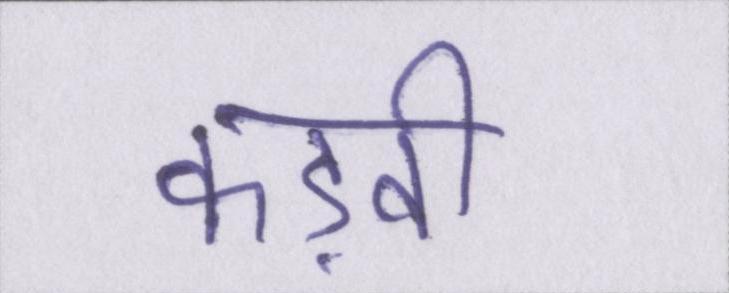 कड़वी